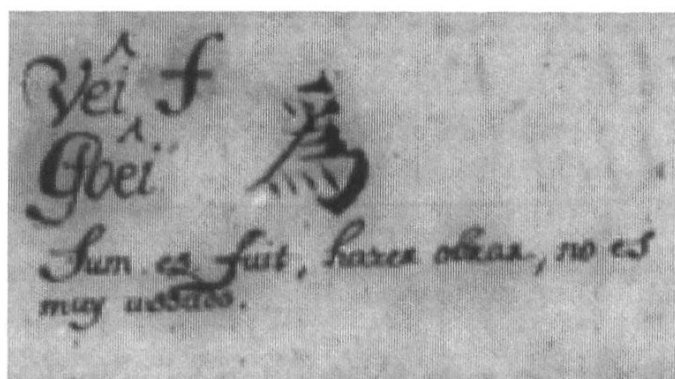 Vêi f 為
Gbêi
Sum es fuit, hazer obrar, no es
muy ussado.